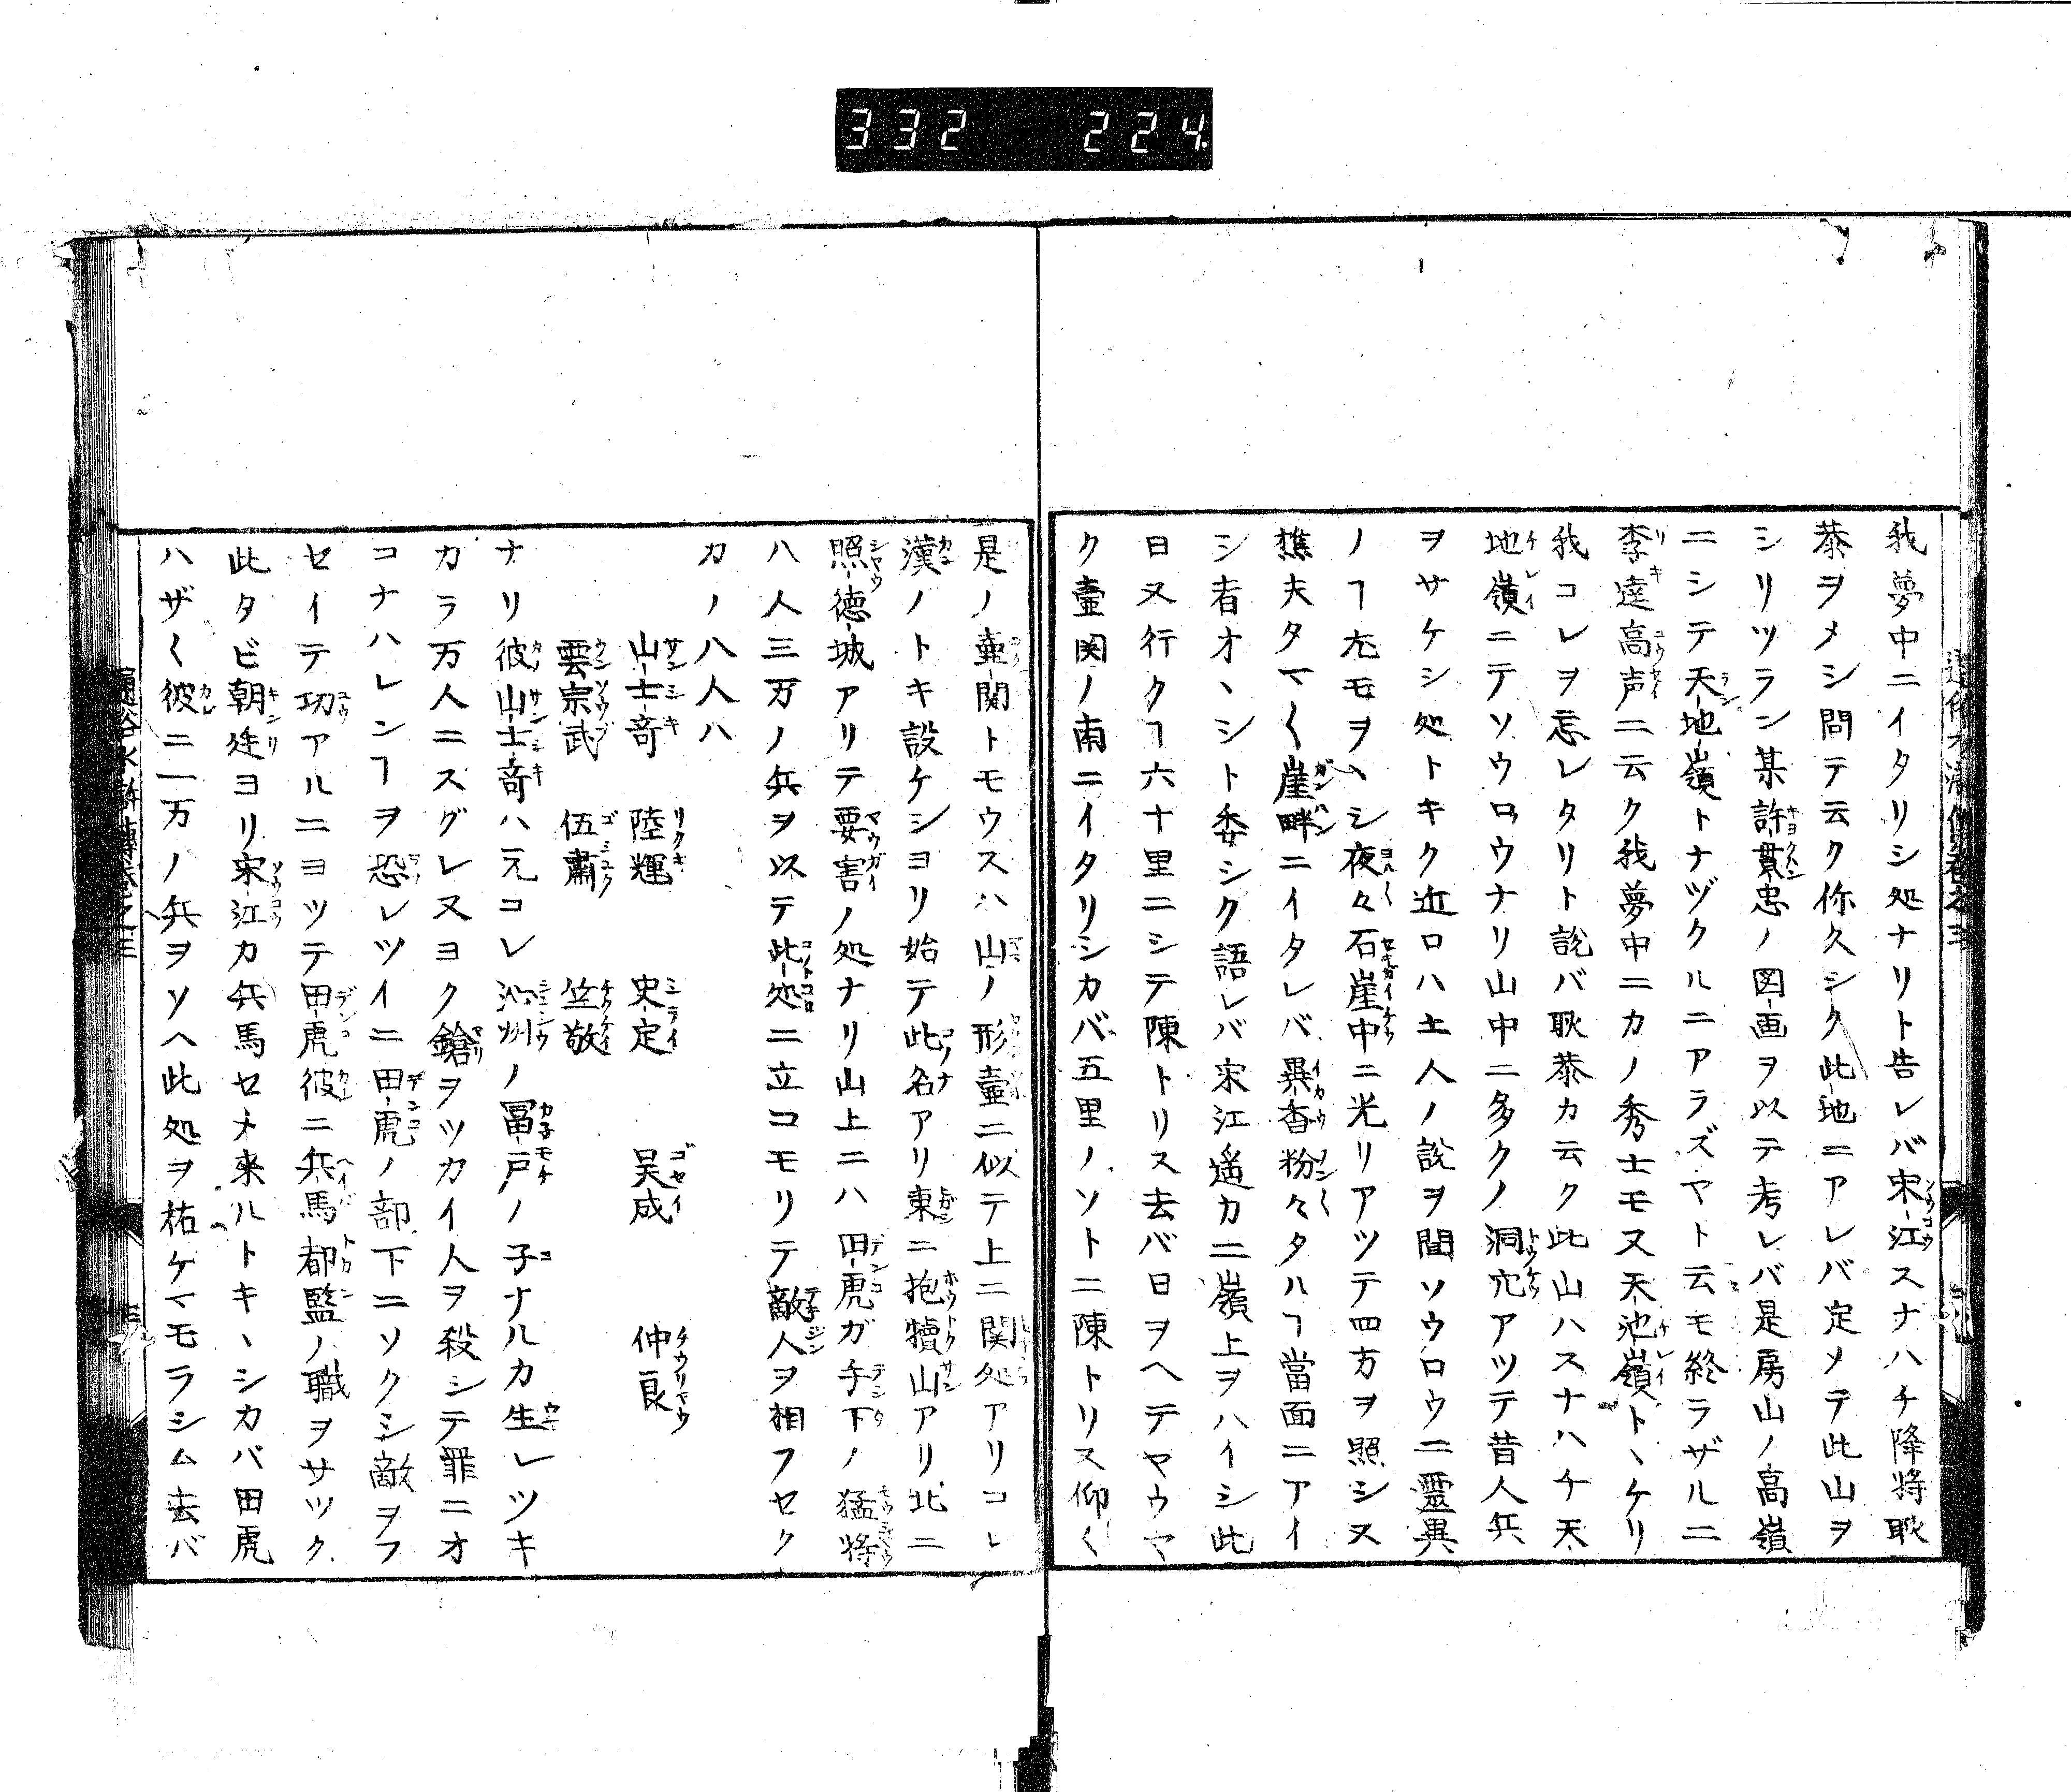 332 224
我夢中ニイタリシ処ナリト告レバ宋江スナハチ降将耿
恭ヲメシ問テ云ク你久シク此地ニアレバ定メテ此山ヲ
シリツラン某許貫忠ノ図画ヲ以テ考レバ是房山ノ高嶺
ニシテ天地嶺トナヅクルニアラズヤト云モ終ラザルニ
李逵高声ニ云ク我夢中ニカノ秀士モ又天池嶺トヽケリ
我コレヲ忘レタリト説バ耿恭カ云ク此山ハスナハチ天
地嶺ニテソウロウナリ山中ニ多クノ洞穴アツテ昔人兵
ヲサケシ処トキク近ロハ土人ノ説ヲ聞ソウロウニ霊異
ノヿ尤モヲヽシ夜々石崖中ニ光リアツテ四方ヲ照シ又
樵夫タマ〱崖畔ニイタレバ異香粉々タルヿ當面ニアイ
シ者オヽシト委シク語レバ宋江遥カニ嶺上ヲハイシ此
日又行クヿ六十里ニシテ陳トリス去バ日ヲヘテヤウヤ
ク壷関ノ南ニイタリシカバ五里ノソトニ陳トリス仰〱
是ノ壷関トモウスハ山ノ形壷ニ似テ上ニ関処アリコレ
漢ノトキ設ケシヨリ始テ此名アリ東ニ抱犢山アリ北ニ
照徳城アリテ要害ノ処ナリ山上ニハ田虎ガ手下ノ猛将
八人三万ノ兵ヲ以テ此処ニ立コモリテ敵人ヲ相フセク
カノ八人ハ
山士奇 陸輝 史定 吴成 仲良
雲宗武 伍肅 竺敬
ナリ彼山士奇ハ元コレ沁州ノ冨戸ノ子ナルカ生レツキ
カラ万人ニスグレ又ヨク鎗ヲツカイ人ヲ殺シテ罪ニオ
コナハレンヿヲ恐レツイニ田虎ノ部下ニソクシ敵ヲフ
セイテ功アルニヨツテ田虎彼ニ兵馬都監ノ職ヲサツク
此タビ朝廷ヨリ宋江カ兵馬セメ来ルトキヽシカバ田虎
ハザ〱彼ニ一万ノ兵ヲソヘ此処ヲ祐ケマモラシム去バ